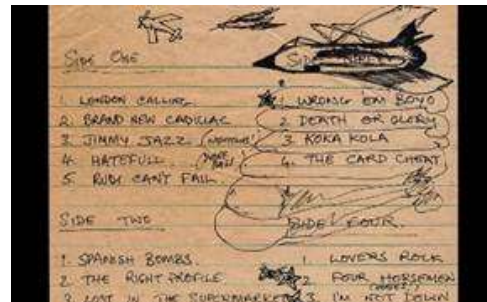 SIDE ONE
1. LONDON CALLING
2. BRAND NEW CADILAC
3. JIMMY JAZZ
4. HATEFULL
5. RUDI CAN'T FAIL
SIDE
1. WRONG 'EM BOYO
2. DEATH OR GLORY
3. KOKA KOLA
4. THE CARD CHEAT
SIDE TWO
1. SPANISH BOMBS.
2. THE RIGHT PROFILE.
3. LOST IN THE SUPERMARKET
SIDE FOUR.
1. LOVERS ROCK
2. FOUR HORSEMEN
3. I'M NOT DOWN